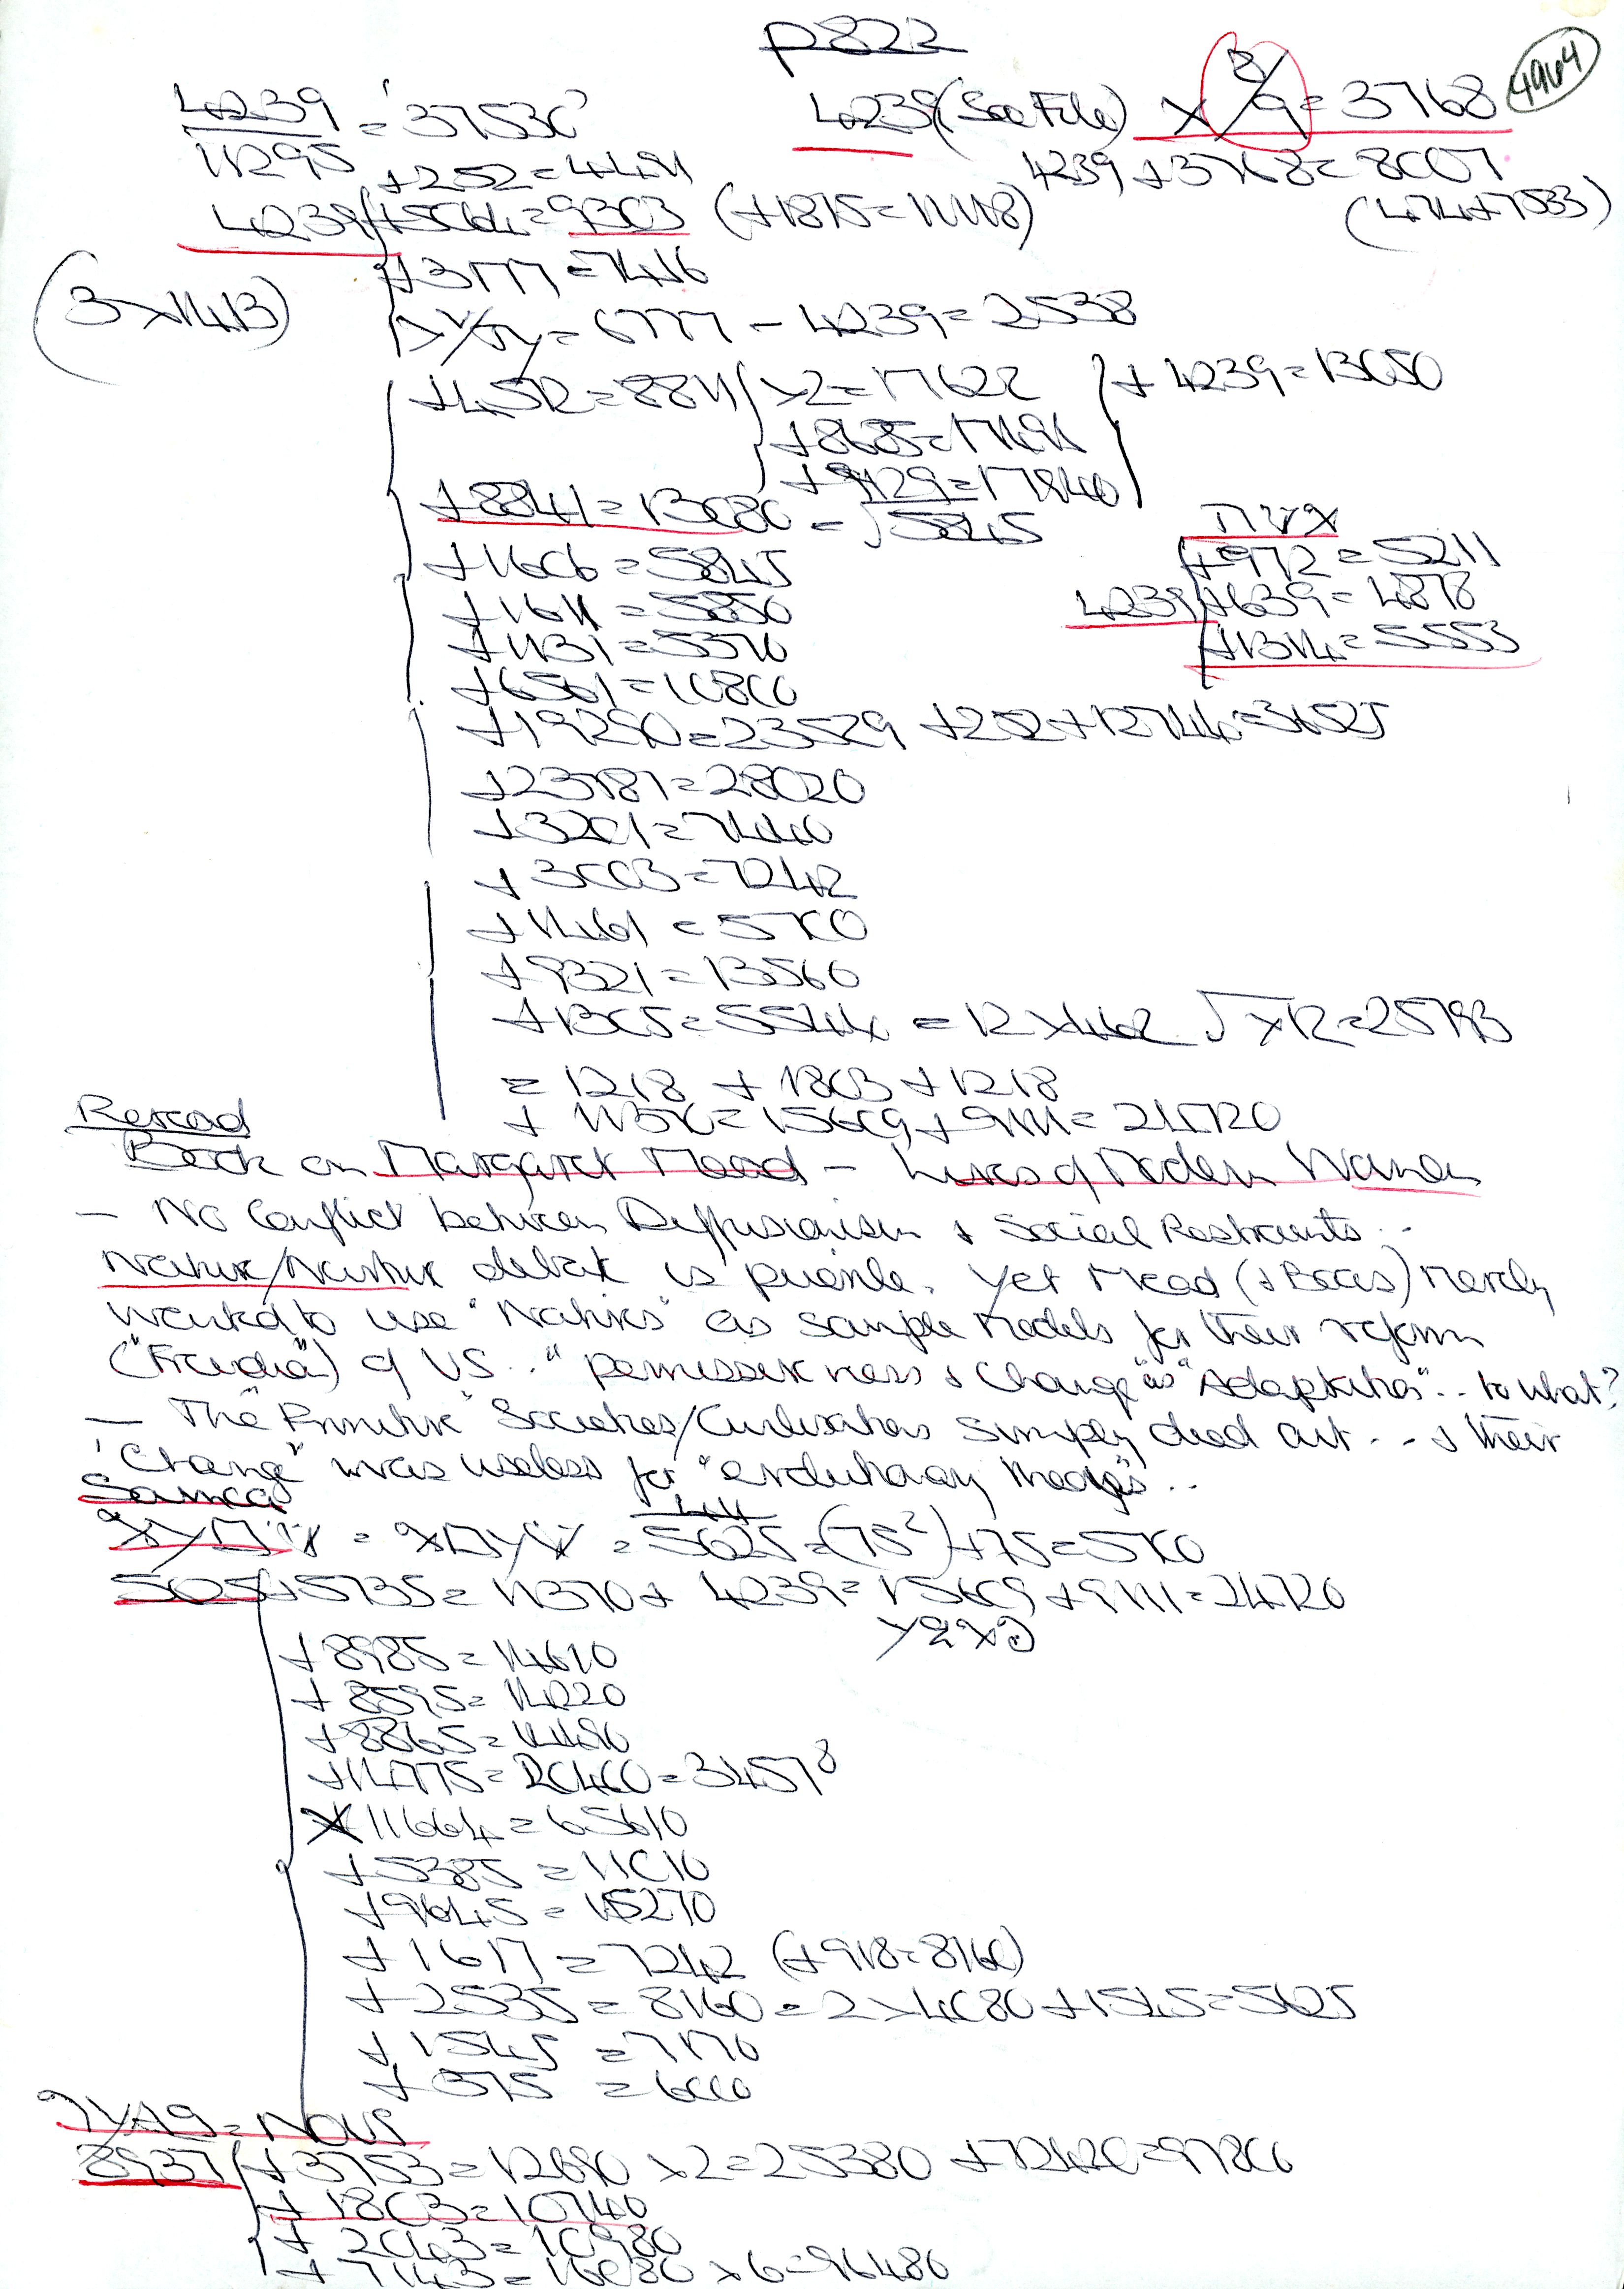 p822
4964
4239 = 37530
11295
4239 (See File) x 8/9 = 3768
+252 = 4491
4239 + 3768 = 8007
4239 +5064 = 9303 (+1815 = 11118)
(474+7533)
+3177 = 7416
(3 x 1413)
= 6777 - 4239 = 2538
+4572 = 8811 x2 = 17622 + 4239 = 13050
+8685 = 17496
+9129 = 17940
+8841 = 13080 = √5845
+1606 = 5845
+972 = 5211
+1611 = 5850
4239 +639 = 4878
+1131 = 5370
+1314 = 5553
+6561 = 10800
+19290 = 23529 +252 +12744 = 36525
+23781 = 28020
+3201 = 7440
+3003 = 7242
+1461 = 5700
+9321 = 13560
+1305 = 5544 = 12 x 462 √ x12 = 25793
= 1218 + 1803 + 1218
+ 11370 = 15609 + 9111 = 24720
Reread
Book on Margaret Mead - Lives of Modern Women
- No Conflict between Diffusionism & Social Restraints..
Nature/Nurture debate is puerile. Yet Mead (+ Boas) merely
wanted to use "Natives" as sample models for their reform
("Freudian") of US.. "permissiveness & Change" as "Adaptation".. to what?
- The "Primitive" Societies/Civilisations simply died out... & their
"Change" was useless for "evolutionary theory"..
Samea
= 5625 = (75²) +75 = 5700
5625 +5735 = 11370 + 4239 = 15609 + 9111 = 24720
+8985 = 14610
+8595 = 14220
+8865 = 14490
+14775 = 20400 = 34578
x 11664 = 65610
+5385 = 11010
+9645 = 15270
+1617 = 7242 (+918 = 8160)
+2535 = 8160 = 2 x 4080 +1545 = 5625
+1545 = 7170
+375 = 6000
= NOUS
8937 +3753 = 12690 x2 = 25380 +72420 = 97800
+1803 = 10740
+2043 = 10980
+7143 = 16080 x 6 = 96480